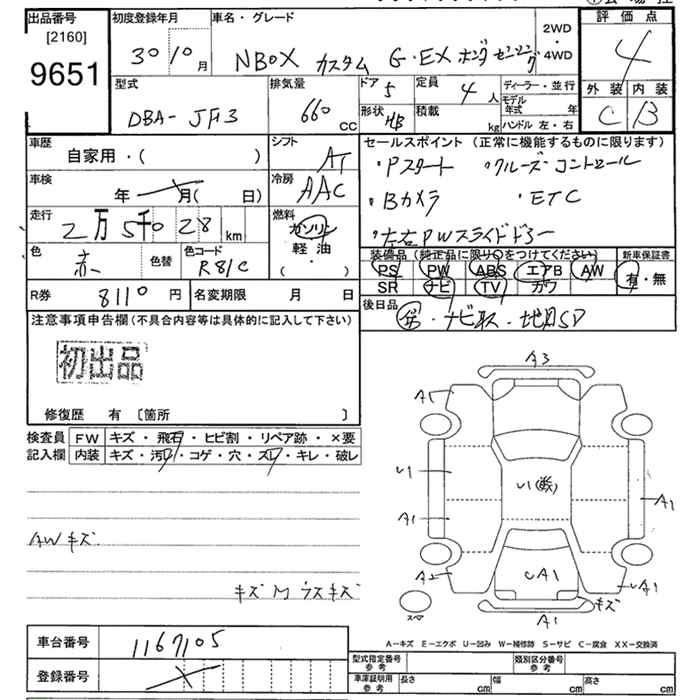 出品番号
[2160]
9651
初度登録年月
30 10月
車名・グレード
NBOX カスタム G・EX ホンダセンシング
2WD
・
4WD
評価点
4
外装 内装
C B
型式
DBA- JF3
排気量
660 cc
ドア 5
定員 4人
形状 HB
積載 kg
ディーラー・並行
モデル年式 年
ハンドル 左・右
車歴
自家用・( )
シフト
AT
車検
年 月( 日)
冷房
AAC
走行
2万5千028 km
燃料
ガソリン
軽・油
・
( )
色
赤
色替
色コード
R81C
R券
8110 円
名変期限 月 日
セールスポイント (正常に機能するものに限ります)
・Pスタート ・クルーズコントロール
・Bカメラ ・ETC
・左右PWスライドドアー
装備品(純正品に限り○をつけてください)
PS PW ABS エアB AW
SR ナビ TV ガワ
新車保証書
有・無
後日品
保・ナビ取・地図SD
注意事項申告欄(不具合内容等は具体的に記入して下さい)
初出品
修復歴 有 [箇所 ]
検査員
記入欄
FW キズ・飛石・ヒビ割・リペア跡・×要
内装 キズ・汚レ・コゲ・穴・ズレ・キレ・破レ
AWキズ
キズM ウスキズ
A3
A1
U1
U1
A1
A1
A2
A1
A1
キズ
スペア
A1
A-キズ E-エクボ U-凹み W-補修跡 S-サビ C-腐食 XX-交換済
車台番号
1167105
登録番号
型式指定番号
参考
類別区分番号
参考
車庫証明用
参考
長さ cm
幅 cm
高さ cm